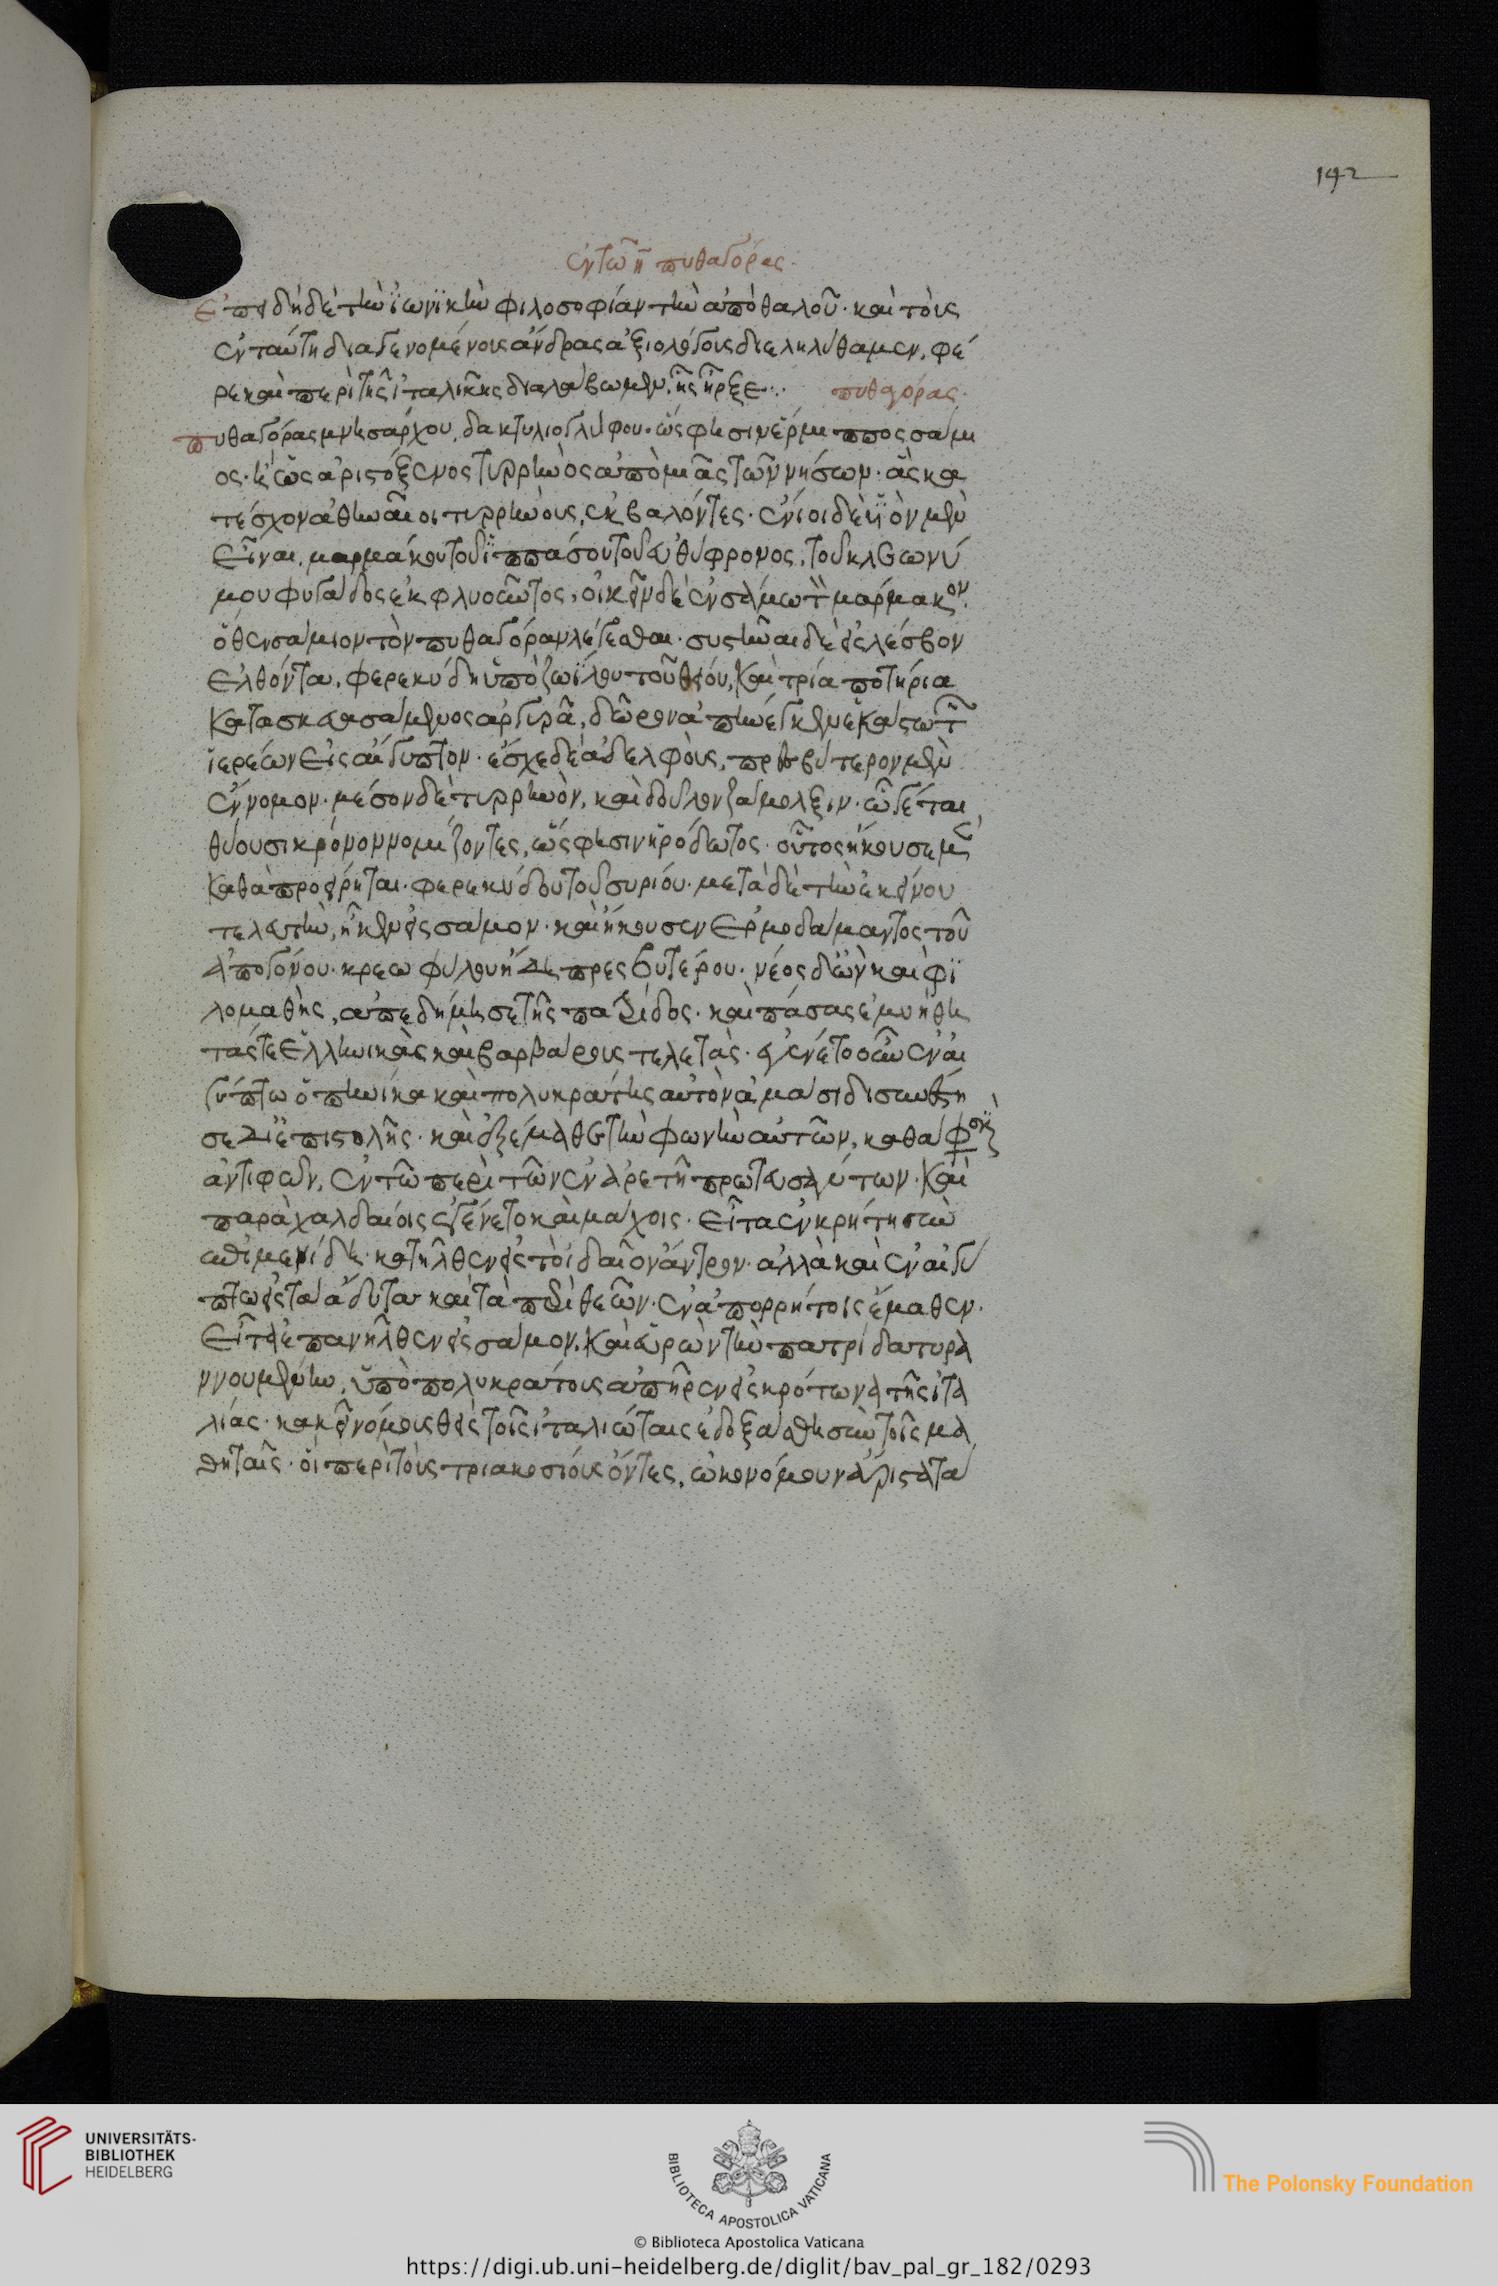 142
ἐν τῶ η̄ πυθαγόρας.
Ἐπειδὴ δὲ τὴν ἰωνικὴν φιλοσοφίαν τὴν ἀπὸ θαλοῦ· καὶ τοὺς
ἐν ταύτη διαγενομένους ἄνδρας ἀξιολόγους διεληλύθαμεν, φέ
ρε καὶ περὶ τῆς ἰταλικῆς διαλάβωμεν, ἧς ἦρξε. πυθαγόρας.
πυθαγόρας μνησάρχου, δακτυλιογλύφου. ὥς φησιν ἕρμιππος σάμι
ος. ἢ ὡς ἀριστόξενος τυρρηνὸς ἀπὸ μιᾶς τῶν νήσων· ἃς κα
τέσχον ἀθηναῖοι τυρρηνοὺς ἐκβαλόντες. ἔνιοι δὲ υἱὸν μὲν
εἶναι, μαρμάκου τοῦ ἱππάσου τοῦ εὐθύφρονος, τοῦ κλεωνύ
μου φυγάδος ἐκ φλυοῦντος, οἰκεῖν δὲ ἐν σάμω τὸν μάρμακον.
ὅθεν σάμιον τὸν πυθαγόραν λέγεσθαι. συστῆναι δὲ εἰς λέσβον
ἐλθόντα, φερεκύδη ὑπὸ ζωΐλου τοῦ θείου, καὶ τρία ποτήρια
κατασκευασάμενος ἀργυρᾶ, δῶρον ἀπήνεγκεν ἑκάστω τῶν
ἱερέων εἰς αἴγυπτον. ἔσχε δὲ ἀδελφοὺς, πρεσβύτερον μὲν
εὔνομον. μέσον δὲ τυρρηνὸν, καὶ δοῦλον ζάμολξιν. ὧ γέται
θύουσι κρόνον νομίζοντες, ὥς φησιν ἡρόδοτος. οὗτος ἤκουσε μὲν
καθὰ προείρηται. φερεκύδου τοῦ συρίου. μετὰ δὲ τὴν ἐκείνου
τελευτὴν, ἧκεν εἰς σάμον. καὶ ἤκουσεν ἑρμοδάμαντος τοῦ
ἀπογόνου. κρεωφύλου ἤδη πρεσβυτέρου. νέος δ' ὢν καὶ φι
λομαθὴς, ἀπεδήμησε τῆς πατρίδος. καὶ πάσας ἐμυήθη
τάς τε ἑλληνικὰς καὶ βαρβάρους τελετάς. ἐγένετο οὖν ἐν αἰ
γύπτω ὁπηνίκα καὶ πολυκράτης αὐτὸν ἀμάσιδι συνέστη
σε δι' ἐπιστολῆς. καὶ ἐξέμαθε τὴν φωνὴν αὐτῶν, καθά φησὶν
ἀντιφῶν, ἐν τῶ περὶ τῶν ἐν ἀρετῆ πρωτευσάντων. καὶ
παρὰ χαλδαίοις ἐγένετο καὶ μάγοις. εἶτα ἐν κρήτη σὺν
ἐπιμενίδη. κατῆλθεν εἰς τὸ ἰδαῖον ἄντρον. ἀλλὰ καὶ ἐν αἰγύ
πτω εἰς τὰ ἄδυτα· καὶ τὰ περὶ θεῶν. ἐν ἀπορρήτοις ἔμαθεν.
εἶτ' ἐπανῆλθεν εἰς σάμον, καὶ εὑρὼν τὴν πατρίδα τυρα
ννουμένην, ὑπὸ πολυκράτους ἀπῆρεν εἰς κρότωνα τῆς ἰτα
λίας. κἀκεῖ νόμους θεὶς τοῖς ἰταλιώταις ἐδοξάσθη σὺν τοῖς μα
θηταῖς. οἳ περὶ τοὺς τριακοσίους ὄντες, ὠκονόμουν ἄριστα τὰ
UNIVERSITÄTS-
BIBLIOTHEK
HEIDELBERG
BIBLIOTECA APOSTOLICA VATICANA
The Polonsky Foundation
© Biblioteca Apostolica Vaticana
https://digi.ub.uni-heidelberg.de/diglit/bav_pal_gr_182/0293